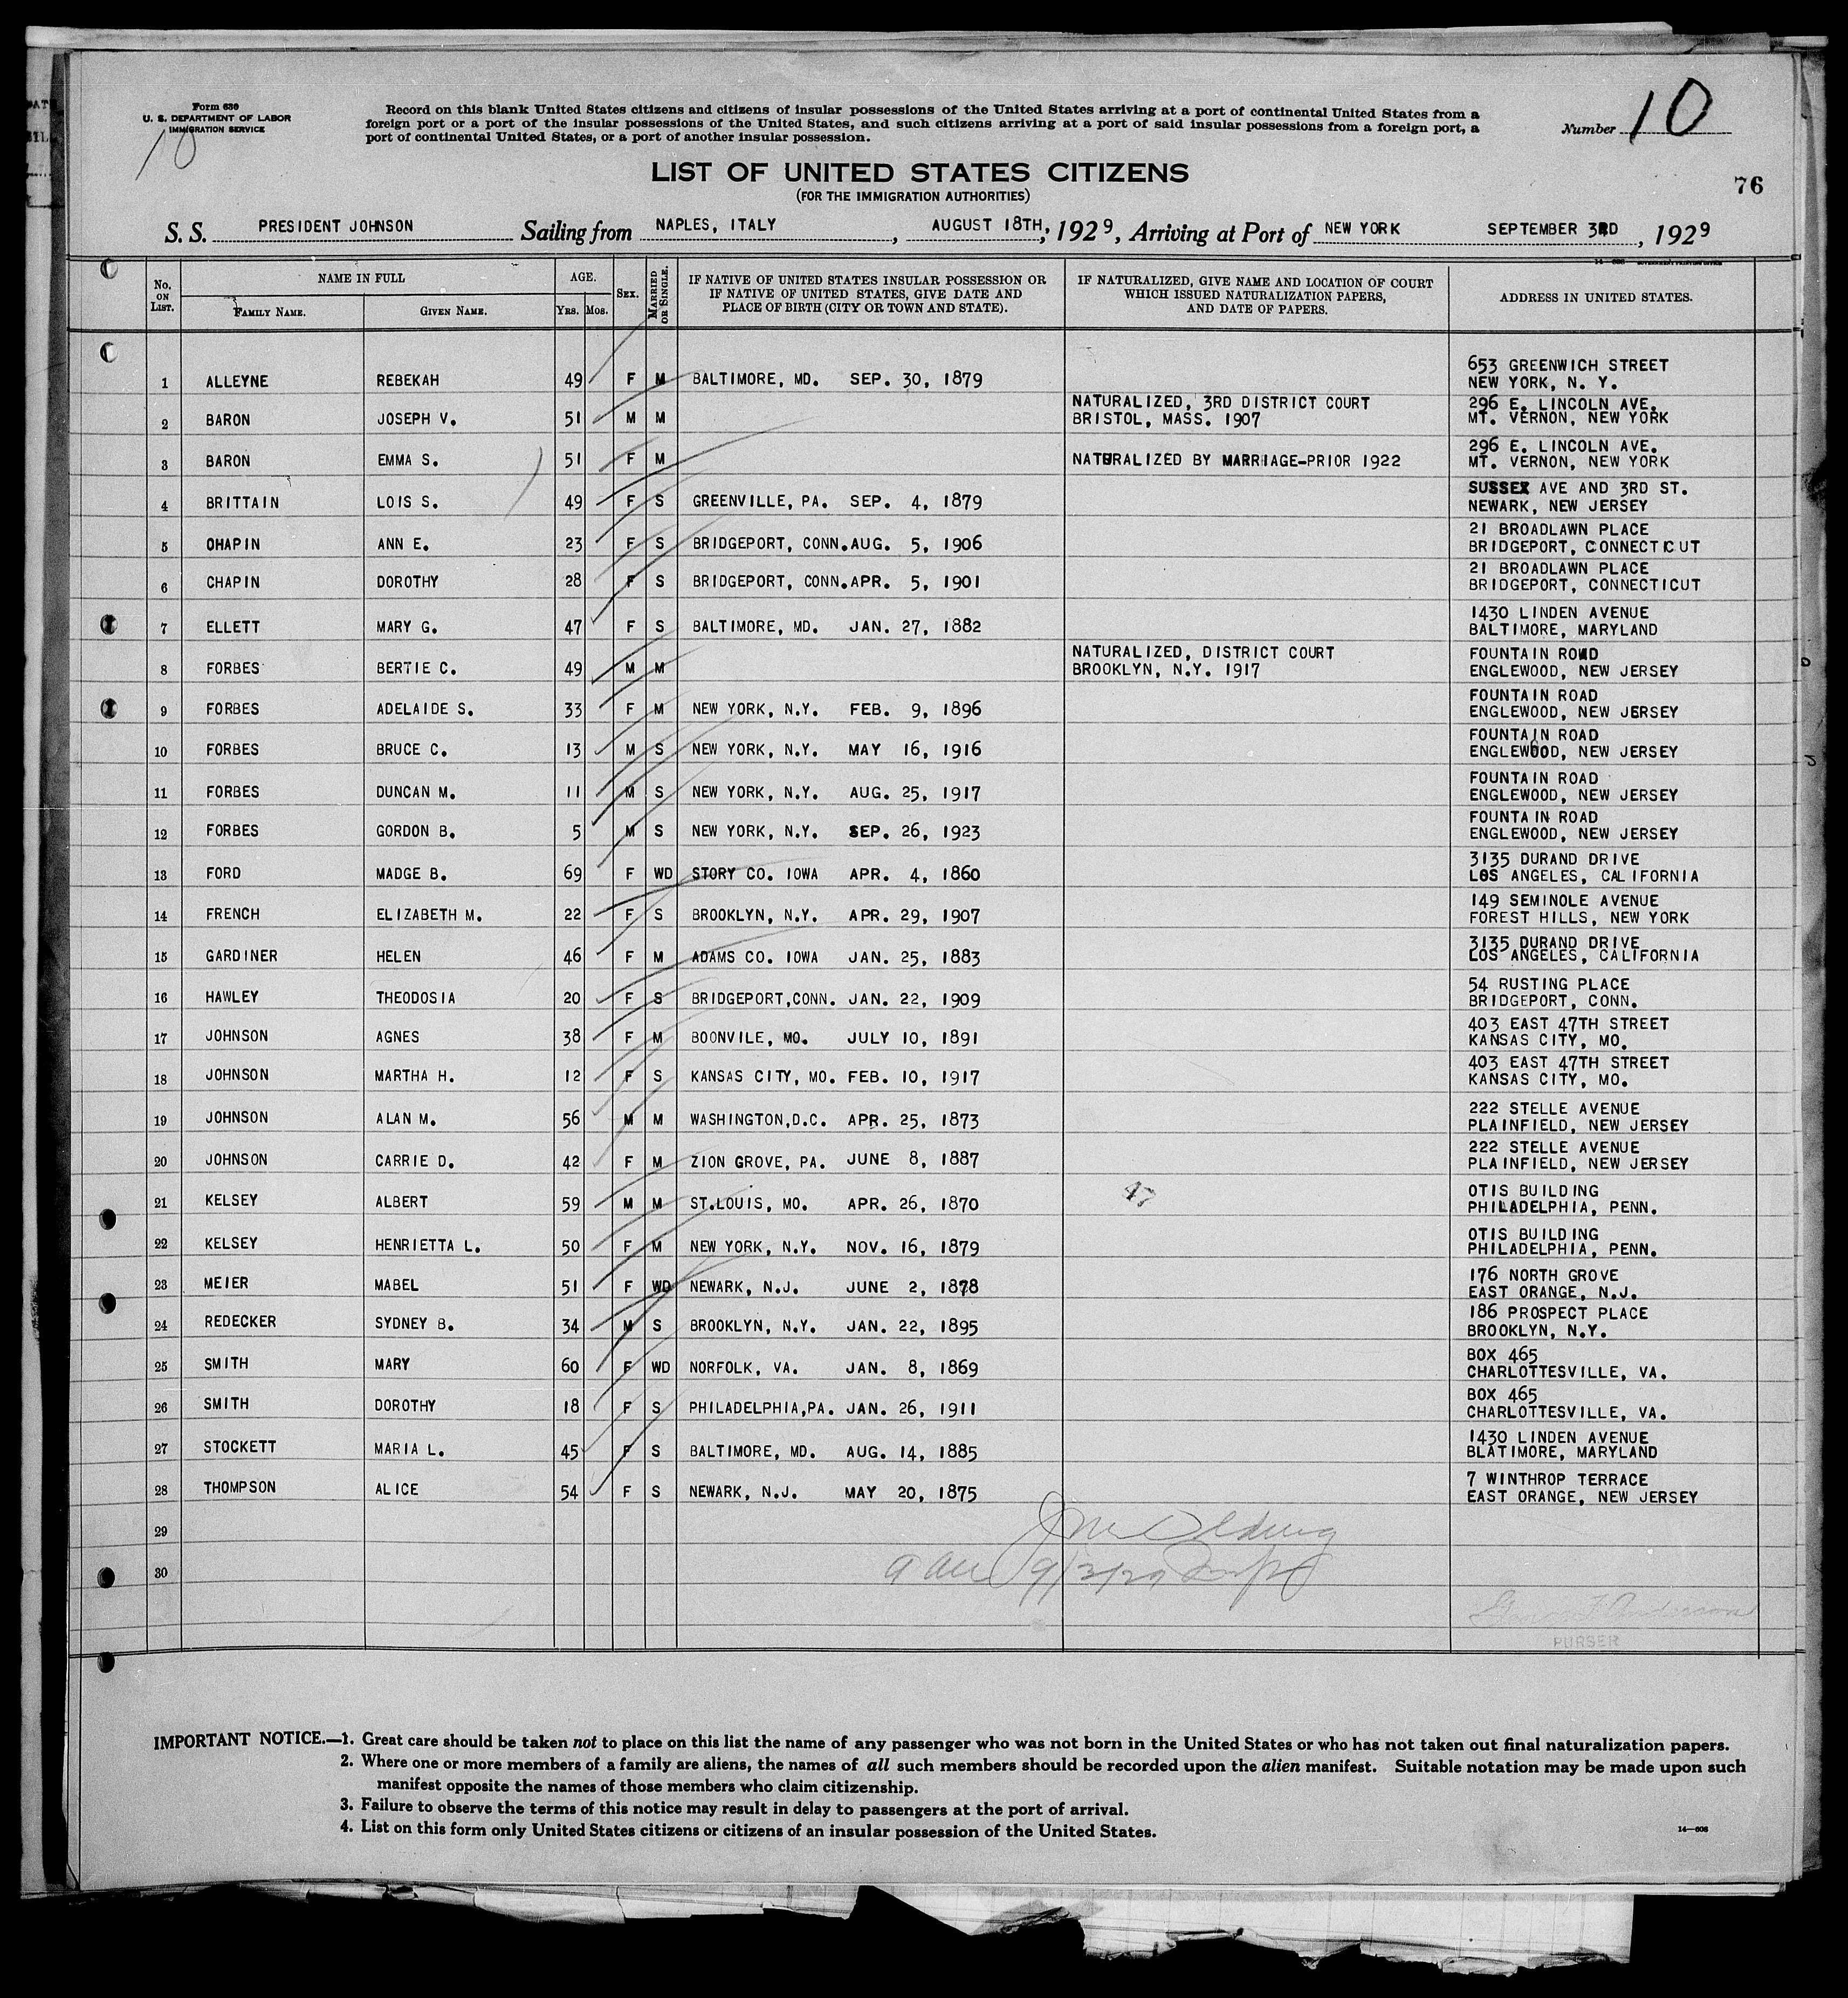 Form 630
U. S. DEPARTMENT OF LABOR
IMMIGRATION SERVICE
10
Record on this blank United States citizens and citizens of insular possessions of the United States arriving at a port of continental United States from a
foreign port or a port of the insular possessions of the United States, and such citizens arriving at a port of said insular possessions from a foreign port, a
port of continental United States, or a port of another insular possession.
Number 10
LIST OF UNITED STATES CITIZENS
(FOR THE IMMIGRATION AUTHORITIES)
76
S. S. PRESIDENT JOHNSON Sailing from NAPLES, ITALY, AUGUST 18TH, 1929, Arriving at Port of NEW YORK SEPTEMBER 3RD, 1929
No. ON LIST. NAME IN FULL FAMILY NAME. GIVEN NAME. AGE. YRS. MOS. SEX. MARRIED OR SINGLE. IF NATIVE OF UNITED STATES INSULAR POSSESSION OR IF NATIVE OF UNITED STATES, GIVE DATE AND PLACE OF BIRTH (CITY OR TOWN AND STATE). IF NATURALIZED, GIVE NAME AND LOCATION OF COURT WHICH ISSUED NATURALIZATION PAPERS, AND DATE OF PAPERS. ADDRESS IN UNITED STATES.
1 ALLEYNE REBEKAH 49 F M BALTIMORE, MD. SEP. 30, 1879 653 GREENWICH STREET NEW YORK, N. Y.
2 BARON JOSEPH V. 51 M M NATURALIZED, 3RD DISTRICT COURT BRISTOL, MASS. 1907 296 E. LINCOLN AVE. MT. VERNON, NEW YORK
3 BARON EMMA S. 51 F M NATURALIZED BY MARRIAGE-PRIOR 1922 296 E. LINCOLN AVE. MT. VERNON, NEW YORK
4 BRITTAIN LOIS S. 49 F S GREENVILLE, PA. SEP. 4, 1879 SUSSEX AVE AND 3RD ST. NEWARK, NEW JERSEY
5 OHAPIN ANN E. 23 F S BRIDGEPORT, CONN. AUG. 5, 1906 21 BROADLAWN PLACE BRIDGEPORT, CONNECTICUT
6 CHAPIN DOROTHY 28 F S BRIDGEPORT, CONN. APR. 5, 1901 21 BROADLAWN PLACE BRIDGEPORT, CONNECTICUT
7 ELLETT MARY G. 47 F S BALTIMORE, MD. JAN. 27, 1882 1430 LINDEN AVENUE BALTIMORE, MARYLAND
8 FORBES BERTIE C. 49 M M NATURALIZED, DISTRICT COURT BROOKLYN, N.Y. 1917 FOUNTAIN ROAD ENGLEWOOD, NEW JERSEY
9 FORBES ADELAIDE S. 33 F M NEW YORK, N.Y. FEB. 9, 1896 FOUNTAIN ROAD ENGLEWOOD, NEW JERSEY
10 FORBES BRUCE C. 13 M S NEW YORK, N.Y. MAY 16, 1916 FOUNTAIN ROAD ENGLEWOOD, NEW JERSEY
11 FORBES DUNCAN M. 11 M S NEW YORK, N.Y. AUG. 25, 1917 FOUNTAIN ROAD ENGLEWOOD, NEW JERSEY
12 FORBES GORDON B. 5 M S NEW YORK, N.Y. SEP. 26, 1923 FOUNTAIN ROAD ENGLEWOOD, NEW JERSEY
13 FORD MADGE B. 69 F WD STORY CO. IOWA APR. 4, 1860 3135 DURAND DRIVE LOS ANGELES, CALIFORNIA
14 FRENCH ELIZABETH M. 22 F S BROOKLYN, N.Y. APR. 29, 1907 149 SEMINOLE AVENUE FOREST HILLS, NEW YORK
15 GARDINER HELEN 46 F M ADAMS CO. IOWA JAN. 25, 1883 3135 DURAND DRIVE LOS ANGELES, CALIFORNIA
16 HAWLEY THEODOSIA 20 F S BRIDGEPORT,CONN. JAN. 22, 1909 54 RUSTING PLACE BRIDGEPORT, CONN.
17 JOHNSON AGNES 38 F M BOONVILE, MO. JULY 10, 1891 403 EAST 47TH STREET KANSAS CITY, MO.
18 JOHNSON MARTHA H. 12 F S KANSAS CITY, MO. FEB. 10, 1917 403 EAST 47TH STREET KANSAS CITY, MO.
19 JOHNSON ALAN M. 56 M M WASHINGTON,D.C. APR. 25, 1873 222 STELLE AVENUE PLAINFIELD, NEW JERSEY
20 JOHNSON CARRIE D. 42 F M ZION GROVE, PA. JUNE 8, 1887 222 STELLE AVENUE PLAINFIELD, NEW JERSEY
21 KELSEY ALBERT 59 M M ST.LOUIS, MO. APR. 26, 1870 47 OTIS BUILDING PHILADELPHIA, PENN.
22 KELSEY HENRIETTA L. 50 F M NEW YORK, N.Y. NOV. 16, 1879 OTIS BUILDING PHILADELPHIA, PENN.
23 MEIER MABEL 51 F WD NEWARK, N.J. JUNE 2, 1878 176 NORTH GROVE EAST ORANGE, N.J.
24 REDECKER SYDNEY B. 34 M S BROOKLYN, N.Y. JAN. 22, 1895 186 PROSPECT PLACE BROOKLYN, N.Y.
25 SMITH MARY 60 F WD NORFOLK, VA. JAN. 8, 1869 BOX 465 CHARLOTTESVILLE, VA.
26 SMITH DOROTHY 18 F S PHILADELPHIA,PA. JAN. 26, 1911 BOX 465 CHARLOTTESVILLE, VA.
27 STOCKETT MARIA L. 45 F S BALTIMORE, MD. AUG. 14, 1885 1430 LINDEN AVENUE BLATIMORE, MARYLAND
28 THOMPSON ALICE 54 F S NEWARK, N.J. MAY 20, 1875 7 WINTHROP TERRACE EAST ORANGE, NEW JERSEY
29
30
9/3/29
Anderson
PURSER
IMPORTANT NOTICE.—1. Great care should be taken not to place on this list the name of any passenger who was not born in the United States or who has not taken out final naturalization papers.
2. Where one or more members of a family are aliens, the names of all such members should be recorded upon the alien manifest. Suitable notation may be made upon such
manifest opposite the names of those members who claim citizenship.
3. Failure to observe the terms of this notice may result in delay to passengers at the port of arrival.
4. List on this form only United States citizens or citizens of an insular possession of the United States.
14—608